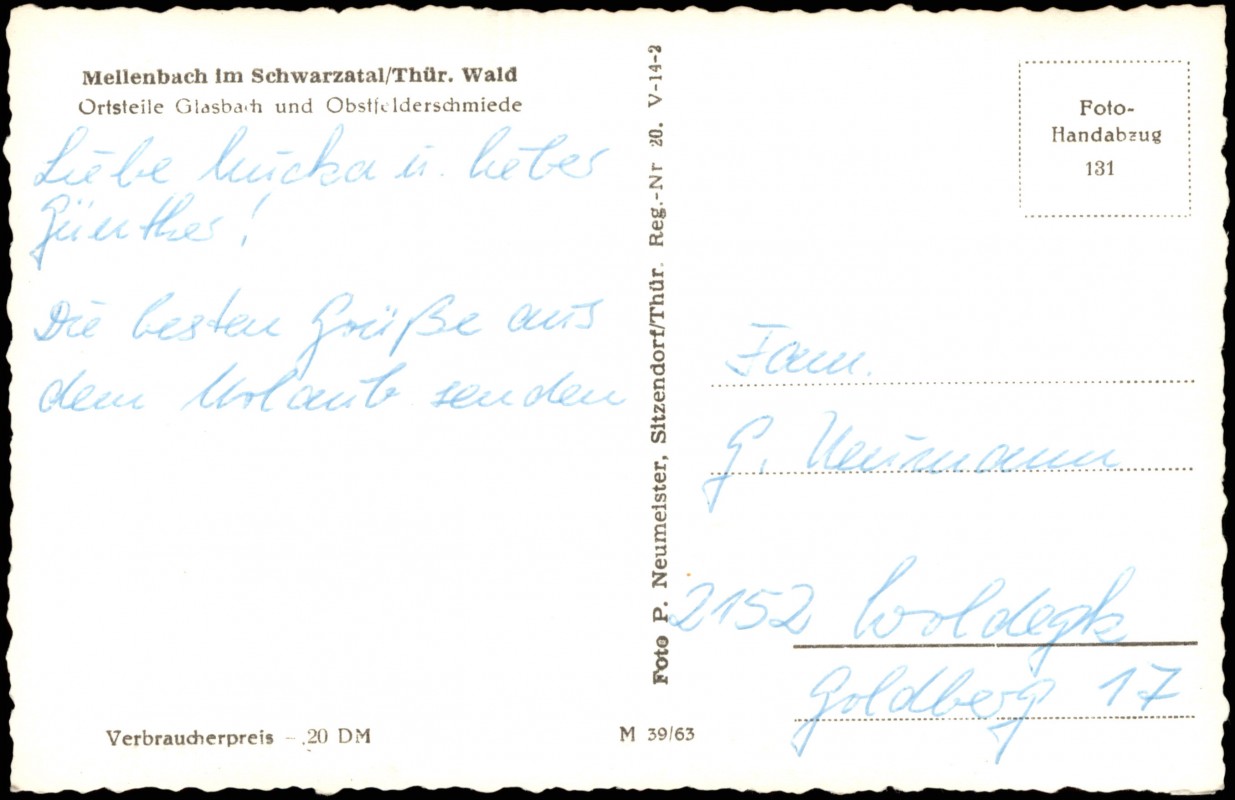 Mellenbach im Schwarzatal/Thür. Wald
Ortsteile Glasbach und Obstfelderschmiede
Liebe Mucka u. lieber
Günther!
Die besten Grüße aus
dem Urlaub senden
Verbraucherpreis –.20 DM
M 39/63
Foto P. Neumeister, Sitzendorf/Thür. Reg.-Nr 20. V-14-2
Foto-
Handabzug
131
Fam.
G. Neumann
2152 Woldegk
Goldberg 17